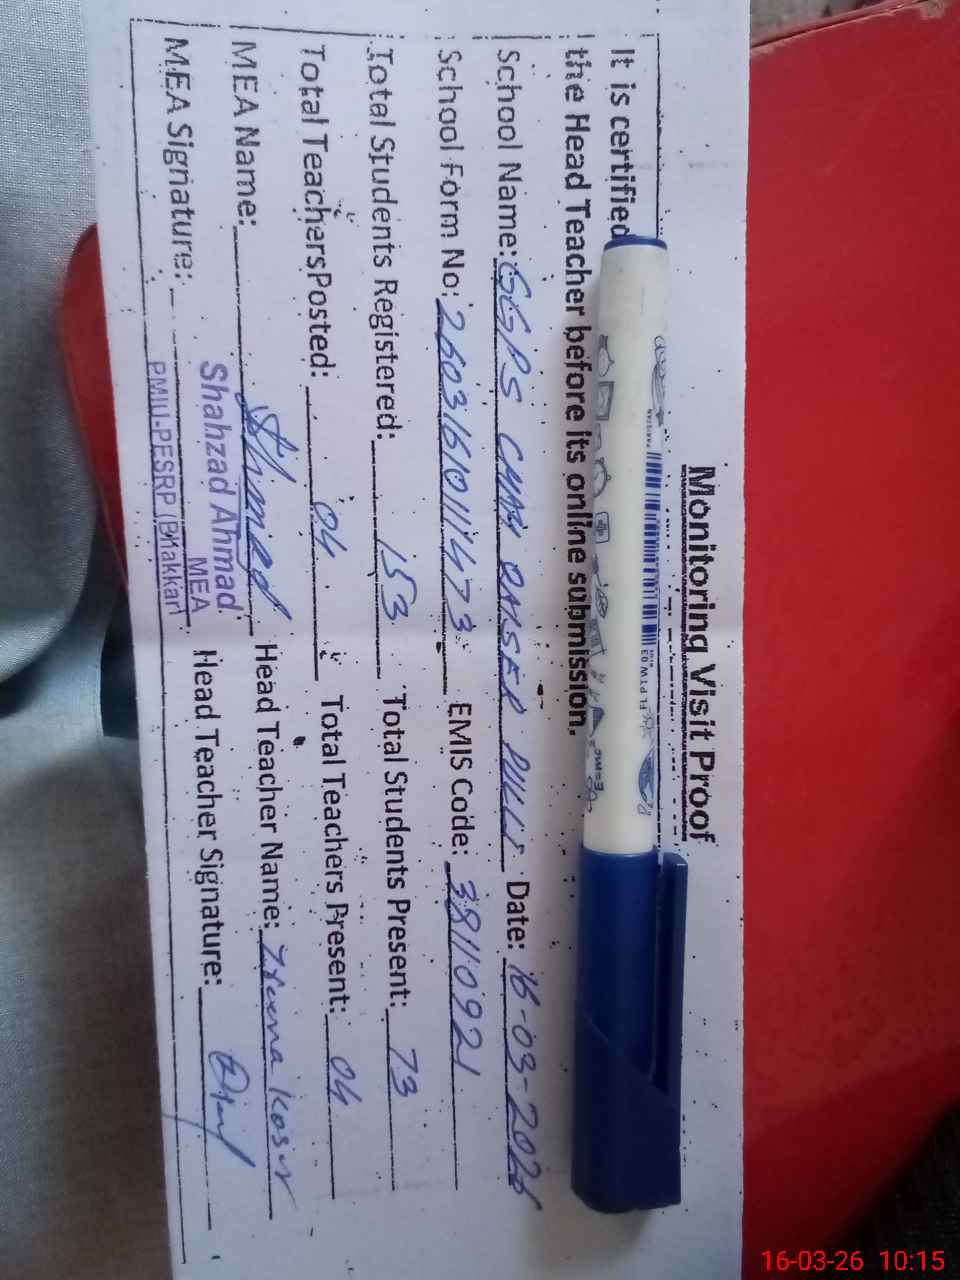 Monitoring Visit Proof
It is certified
the Head Teacher before its online submission.
School Name: GGPS CHAH QAISER WALI Date: 16-03-2026
School Form No: 26031610111473 EMIS Code: 38110921
Total Students Registered: 153 Total Students Present: 73
Total TeachersPosted: 04 Total Teachers Present: 04
MEA Name: Ahmed Head Teacher Name: Kosar
MEA Signature: Head Teacher Signature:
Shahzad Ahmad
MEA
PMIU-PESRP (Bhakkar)
16-03-26 10:15